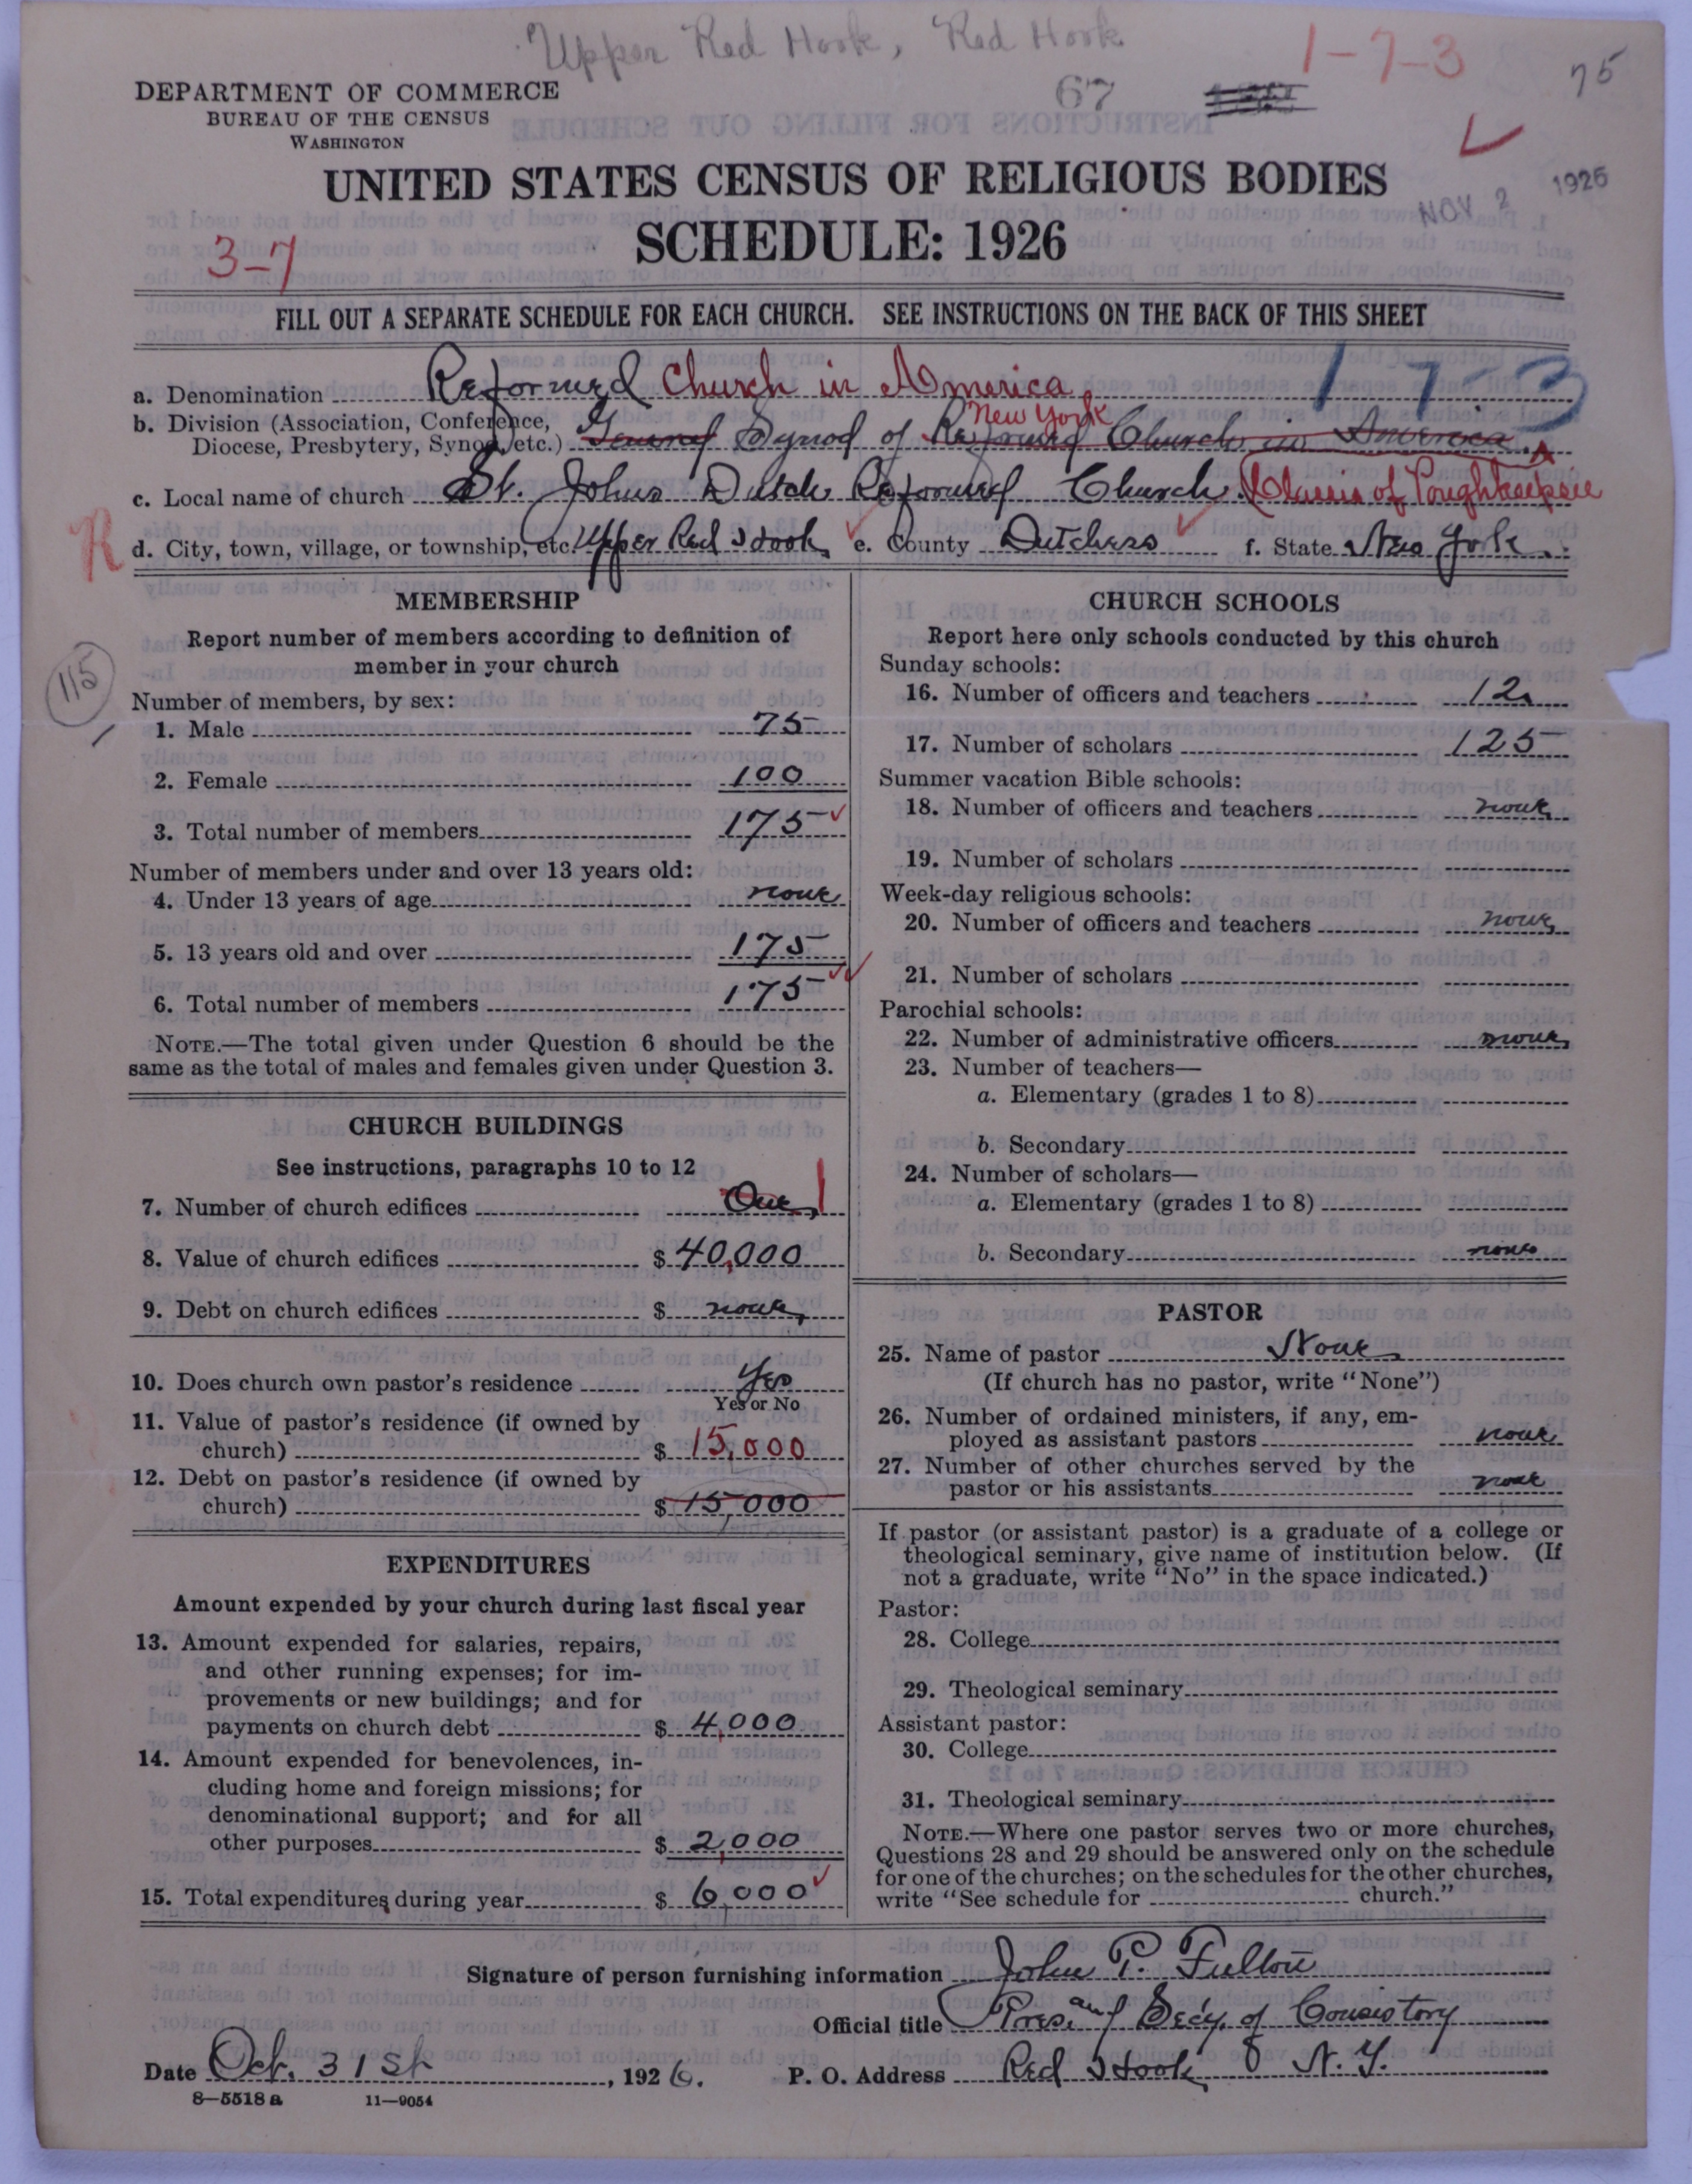 Upper Red Hook, Red Hook
1-7-3
75
67
DEPARTMENT OF COMMERCE
BUREAU OF THE CENSUS
WASHINGTON
UNITED STATES CENSUS OF RELIGIOUS BODIES
NOV 2 1926
SCHEDULE: 1926
3-7
FILL OUT A SEPARATE SCHEDULE FOR EACH CHURCH. SEE INSTRUCTIONS ON THE BACK OF THIS SHEET
a. Denomination Reformed Church in America 1-7-3
b. Division (Association, Conference,
New York
Diocese, Presbytery, Synod, etc.) General Synod of Reformed Church in America
c. Local name of church St. Johns Dutch Reformed Church Classis of Poughkeepsie
R d. City, town, village, or township, etc. Upper Red Hook e. County Dutchess f. State New York
MEMBERSHIP
Report number of members according to definition of
member in your church
115
Number of members, by sex:
1. Male 75
2. Female 100
3. Total number of members 175
Number of members under and over 13 years old:
4. Under 13 years of age none
5. 13 years old and over 175
6. Total number of members 175
NOTE.—The total given under Question 6 should be the
same as the total of males and females given under Question 3.
CHURCH BUILDINGS
See instructions, paragraphs 10 to 12
7. Number of church edifices One 1
8. Value of church edifices $ 40,000
9. Debt on church edifices $ none
10. Does church own pastor's residence Yes
Yes or No
11. Value of pastor's residence (if owned by
church) $ 15,000
12. Debt on pastor's residence (if owned by
church) $ 15,000
EXPENDITURES
Amount expended by your church during last fiscal year
13. Amount expended for salaries, repairs,
and other running expenses; for im-
provements or new buildings; and for
payments on church debt $ 4,000
14. Amount expended for benevolences, in-
cluding home and foreign missions; for
denominational support; and for all
other purposes $ 2,000
15. Total expenditures during year $ 6,000
CHURCH SCHOOLS
Report here only schools conducted by this church
Sunday schools:
16. Number of officers and teachers 12
17. Number of scholars 125
Summer vacation Bible schools:
18. Number of officers and teachers none
19. Number of scholars
Week-day religious schools:
20. Number of officers and teachers none
21. Number of scholars
Parochial schools:
22. Number of administrative officers none
23. Number of teachers—
a. Elementary (grades 1 to 8)
b. Secondary
24. Number of scholars—
a. Elementary (grades 1 to 8)
b. Secondary none
PASTOR
25. Name of pastor None
(If church has no pastor, write "None")
26. Number of ordained ministers, if any, em-
ployed as assistant pastors none
27. Number of other churches served by the
pastor or his assistants none
If pastor (or assistant pastor) is a graduate of a college or
theological seminary, give name of institution below. (If
not a graduate, write "No" in the space indicated.)
Pastor:
28. College
29. Theological seminary
Assistant pastor:
30. College
31. Theological seminary
NOTE.—Where one pastor serves two or more churches,
Questions 28 and 29 should be answered only on the schedule
for one of the churches; on the schedules for the other churches,
write "See schedule for church."
Signature of person furnishing information John P. Fulton
Official title Pres. and Sec'y. of Consistory
Date Oct. 31st, 1926. P. O. Address Red Hook N. Y.
8—5518 a 11—9054